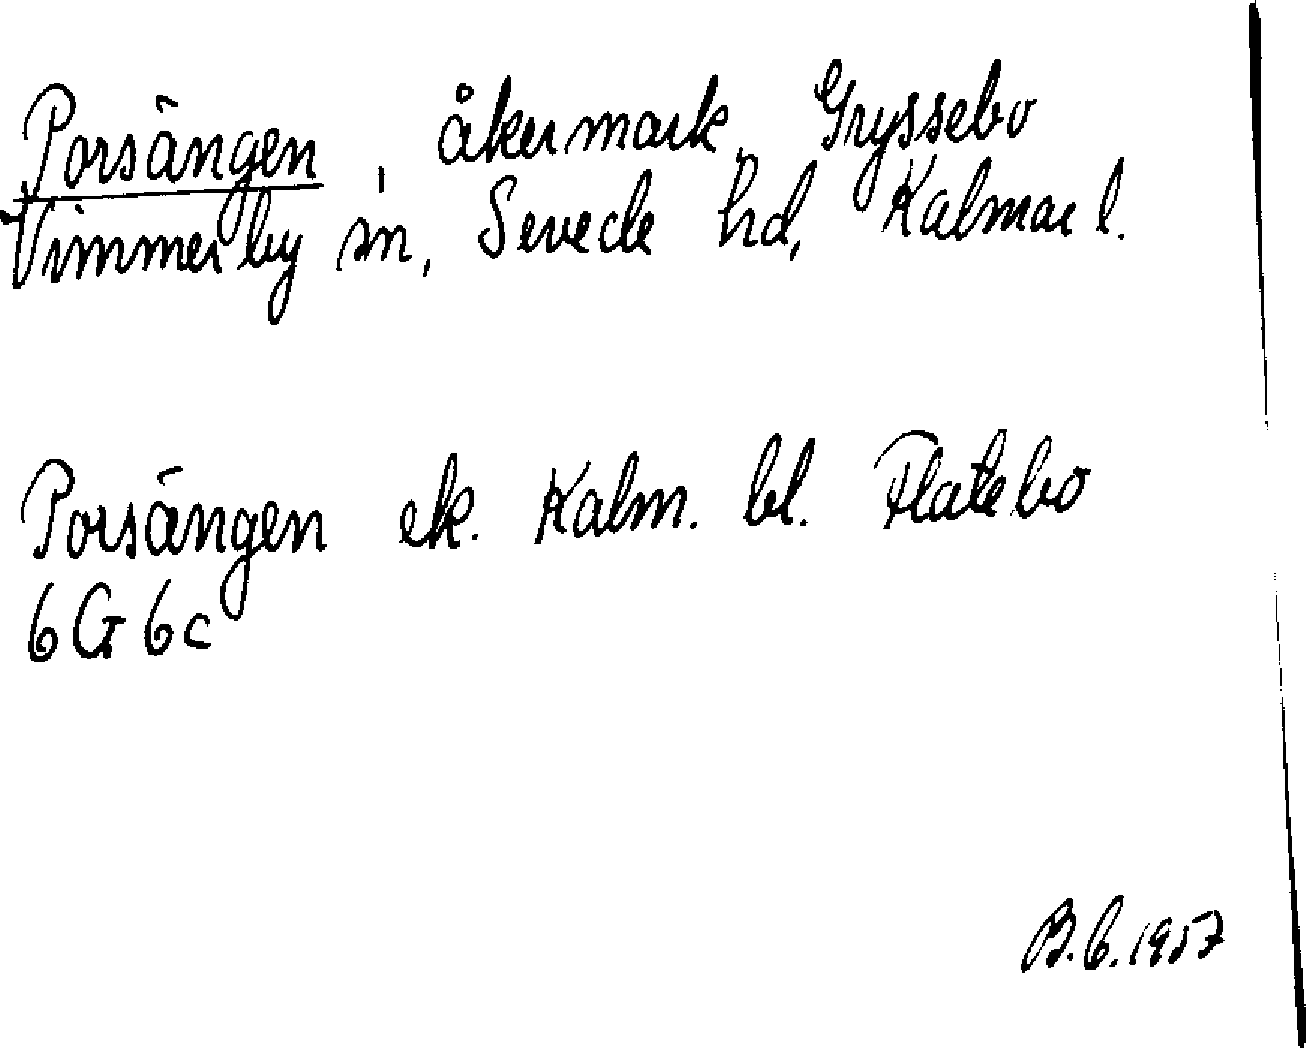 Porsängen, åkermark, Gryssebo
Vimmerby sn, Sevede hd, Kalmar l.
Porsängen ek. Kalm. bl. Flatebo
6G 6c
B.C. 1957